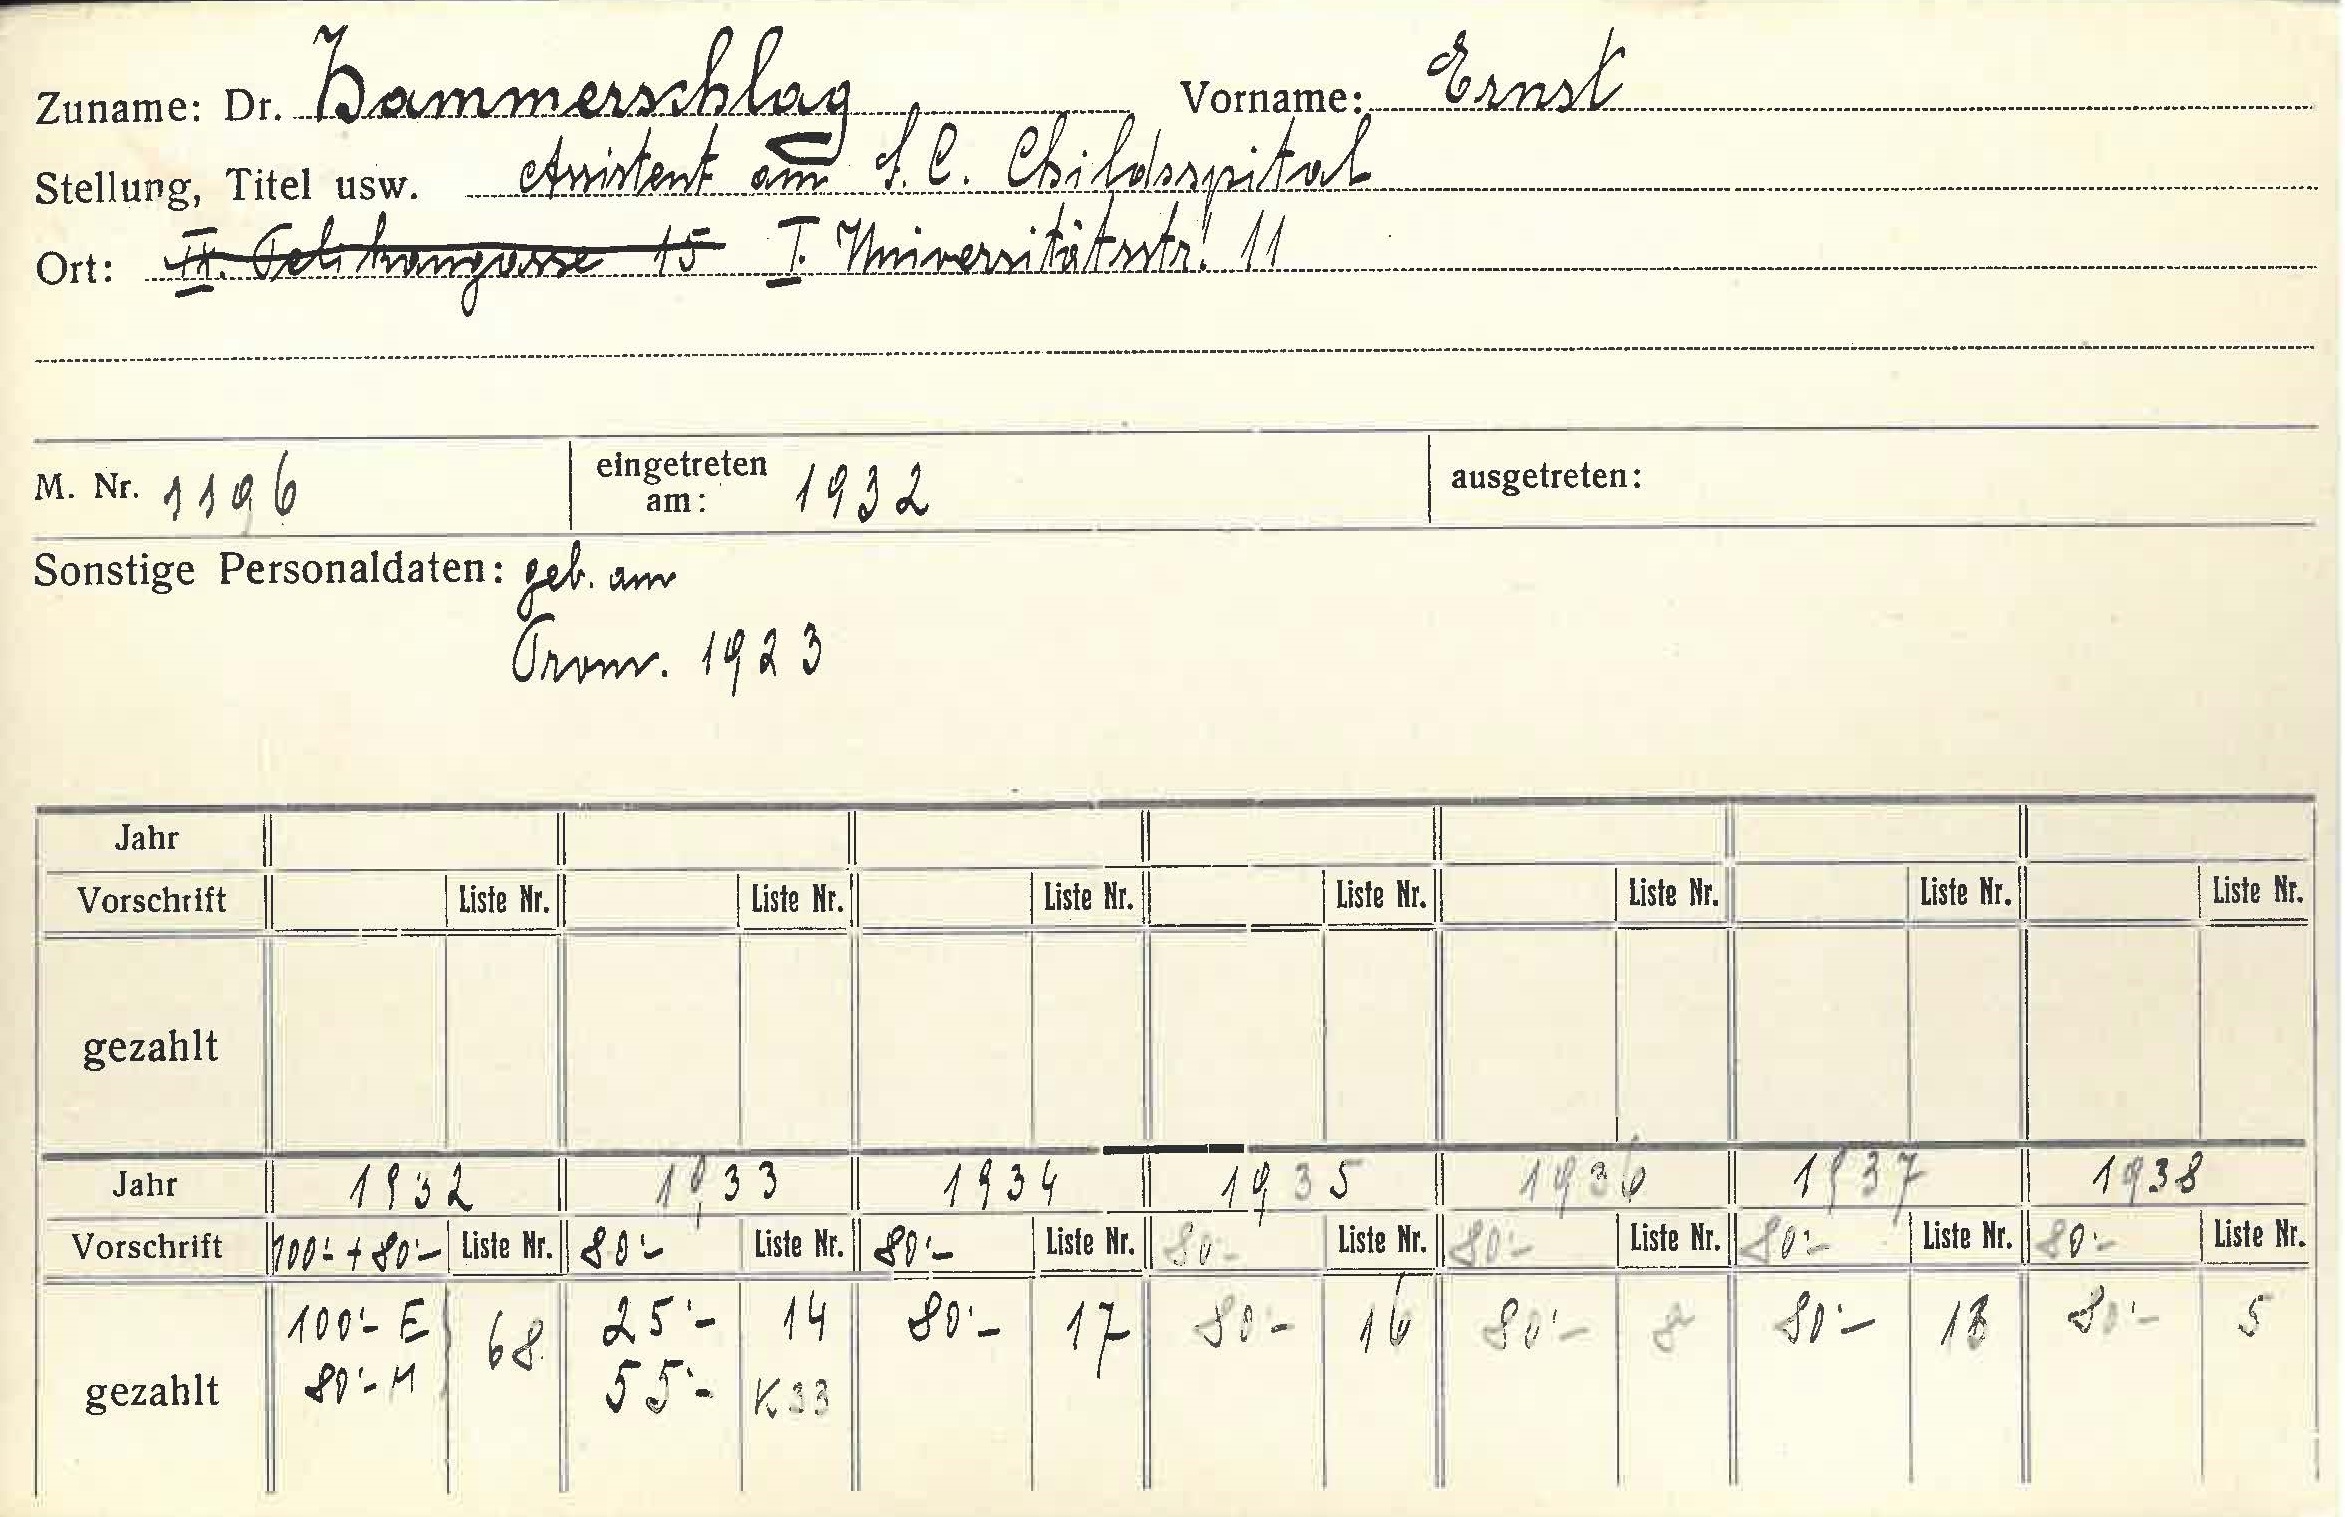 Zuname: Dr. Hammerschlag Vorname: Ernst
Stellung, Titel usw. Assistent am S. C. Childsspital
Ort: IX. Pelikangasse 15 I. Universitätsstr. 11
M. Nr. 1196 eingetreten am: 1932 ausgetreten:
Sonstige Personaldaten: geb. am
Prom. 1923
Jahr
Vorschrift Liste Nr. Liste Nr. Liste Nr. Liste Nr. Liste Nr. Liste Nr. Liste Nr.
gezahlt
Jahr 1932 1933 1934 1935 1936 1937 1938
Vorschrift 100'- + 80'- Liste Nr. 80'- Liste Nr. 80'- Liste Nr. 80'- Liste Nr. 80'- Liste Nr. 80'- Liste Nr. 80'- Liste Nr.
100'- E 68 25'- 14 80'- 17 80'- 16 80'- 80'- 13 80'- 5
gezahlt 80'- M 55'- K 33